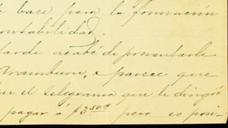 base para la formación
contabilidad.
tarde acabó de presentarle
Aramburu, parece que
el telegrama que le dirigó
pagar a $3.500 pero es por